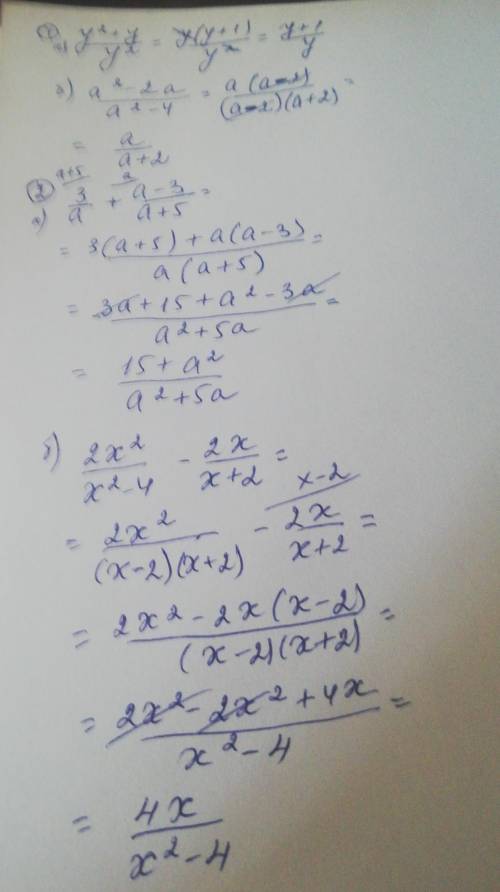 ① а) (y²+y)/y² = y(y+1)/y² = (y+1)/y
б) (a²-2a)/(a²-4) = a(a-2)/((a-2)(a+2)) =
= a/(a+2)
② а) 3/a (a+5) + (a-3)/(a+5) (a) =
= (3(a+5)+a(a-3))/(a(a+5)) =
= (3a+15+a²-3a)/(a²+5a) =
= (15+a²)/(a²+5a)
б) 2x²/(x²-4) - 2x/(x+2) =
= 2x²/((x-2)(x+2)) - 2x/(x+2) (x-2) =
= (2x²-2x(x-2))/((x-2)(x+2)) =
= (2x²-2x²+4x)/(x²-4) =
= 4x/(x²-4)